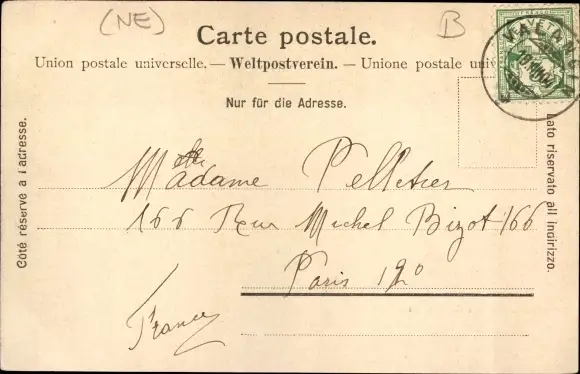 (NE)
B
Carte postale.
Union postale universelle. — Weltpostverein. — Unione postale univ
Nur für die Adresse.
Côté réservé à l'adresse.
Lato riservato all indirizzo.
Madame Pelletier
166 Rue Michel Bizot 166
Paris 12º
France